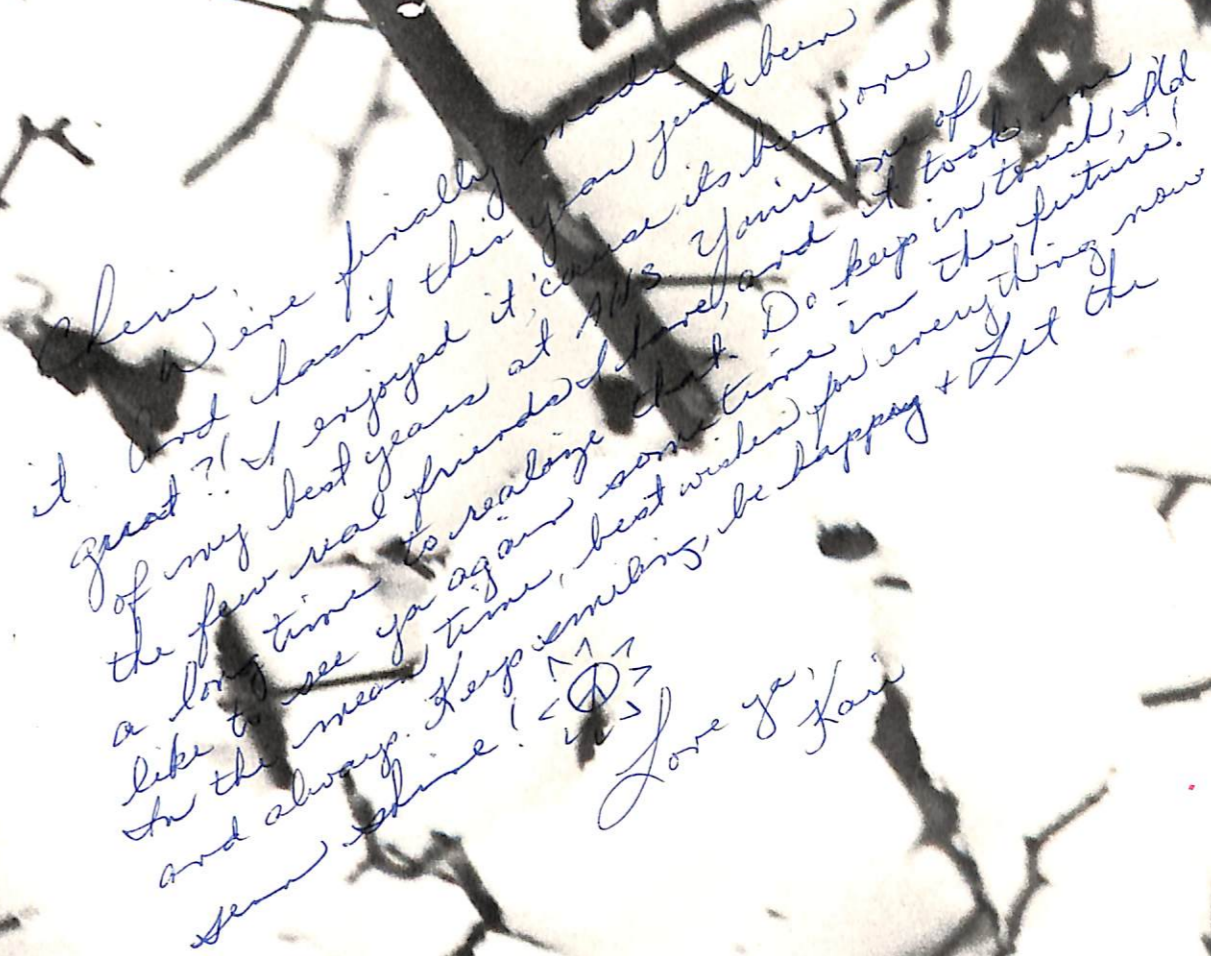 Cheri,
We've finally made
it and hasn't this year just been
great?! I enjoyed it, 'cause its been one
of my best years at AHS. You're one of
the few real friends I have, and it took me
a long time to realize that. Do keep in touch, I'd
like to see ya again sometime in the future!
In the mean time, best wishes for everything now
and always. Keep smiling, be happy + Let the
sun shine!
Love ya,
Kari